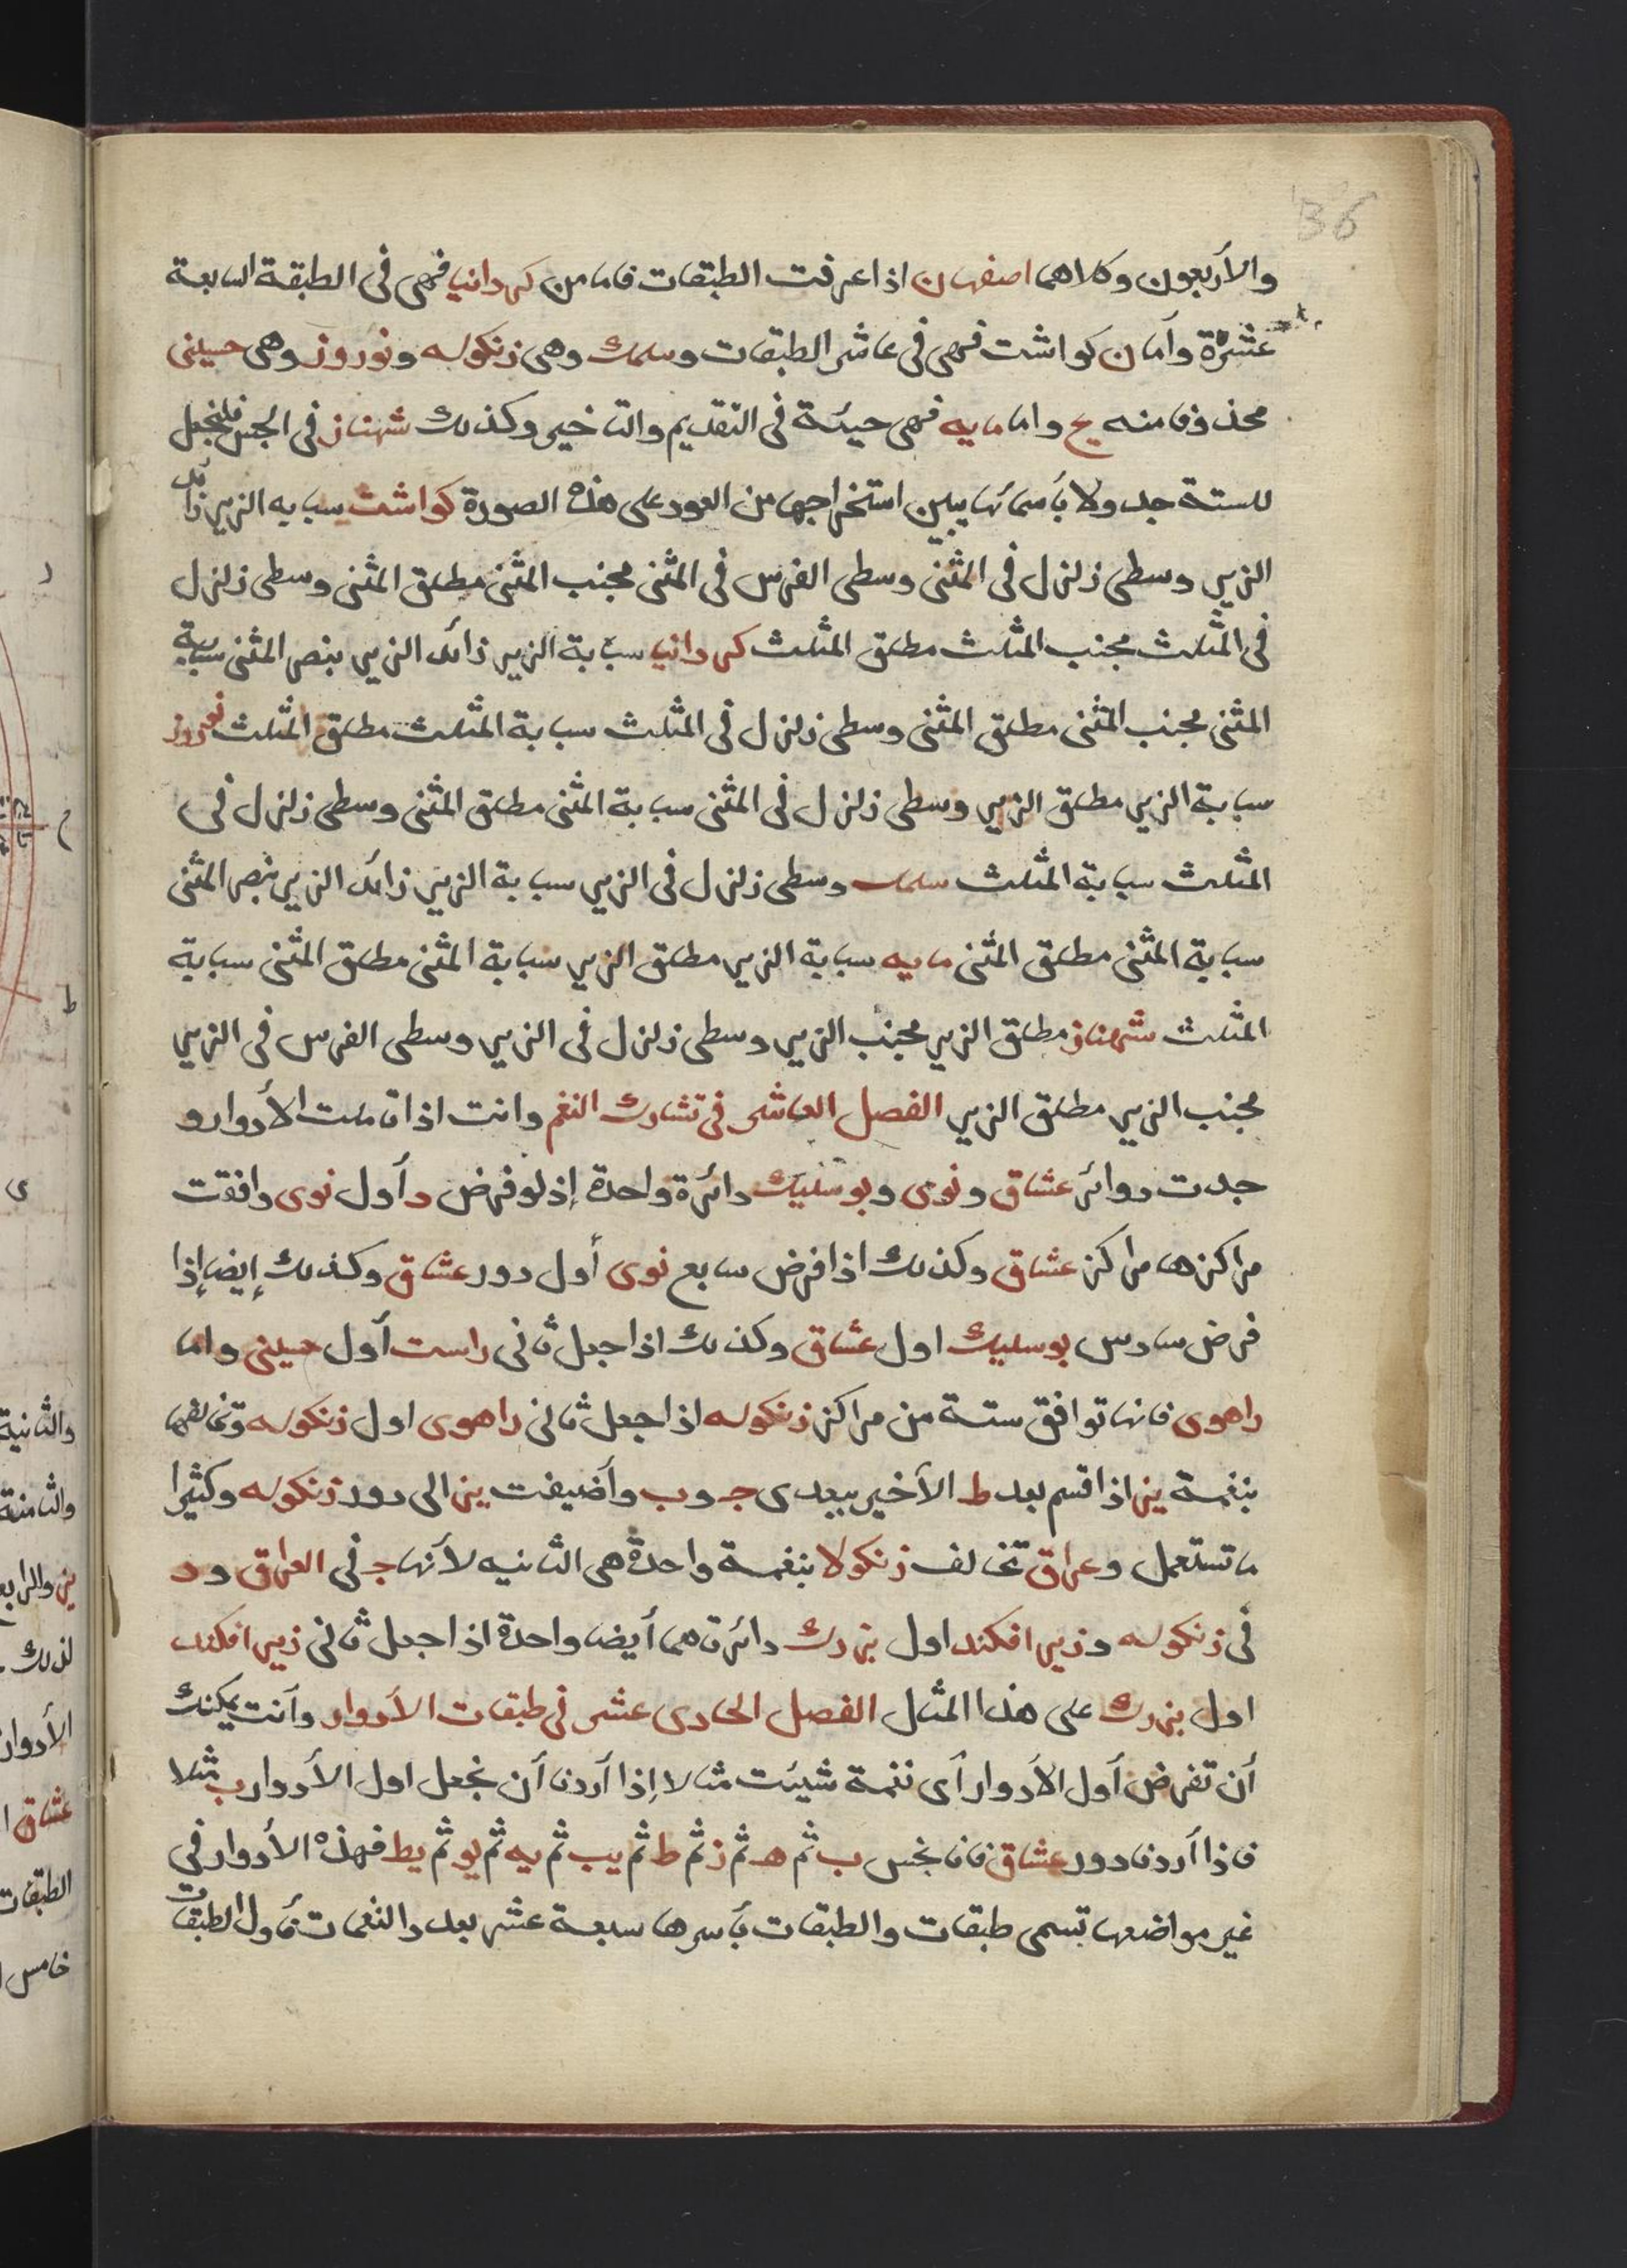 36
والأربعون وكلاهما اصفهان اذا عرفت الطبقات فاما من كردانيا فهى فى الطبقة السابعة
عشرة وأما ن كواشت فهى فى عاشر الطبقات وسلمك وهى زنكوله ونوروز وهى حسينى
محذوفا منه يح واما مايه فهى حيئة فى التقديم والتاخير وكذلك شهناز فى الجنس فلنجعل
للستة جدولا بأسمائها يبين استخراجها من العود على هذه الصورة كواشت سبابه الزير زائد
الزير وسطى زلزل فى المثنى وسطى الفرس فى المثنى مجنب المثنى مطلق المثنى وسطى زلزل
فى المثلث مجنب المثلث مطلق المثلث كردانيا سبابة الزير زائد الزير بنصر المثنى سبابة
المثنى مجنب المثنى مطلق المثنى وسطى زلزل فى المثلث سبابة المثلث مطلق المثلث نوروز
سبابة الزير مطلق الزير وسطى زلزل فى المثنى سبابة المثنى مطلق المثنى وسطى زلزل فى
المثلث سبابة المثلث سلمك وسطى زلزل فى الزير سبابة الزير زائد الزير بنصر المثنى
سبابة المثنى مطلق المثنى مايه سبابة الزير مطلق الزير سبابة المثنى مطلق المثنى سبابة
المثلث شهناز مطلق الزير مجنب الزير وسطى زلزل فى الزير وسطى الفرس فى الزير
مجنب الزير مطلق الزير الفصل العاشر فى تشارك النغم وانت اذا تاملت الأدوار و
جدت دوائر عشاق ونوى وبوسليك دائرة واحدة إذ لو فرض د أول نوى وافقت
مراكزها مراكز عشاق وكذلك اذا فرض سابع نوى أول دور عشاق وكذلك إيضا إذا
فرض سادس بوسليك اول عشاق وكذلك اذا جعل ثانى راست أول حسينى واما
راهوى فانها توافق ستة من مراكز زنكوله اذا جعل ثانى راهوى اول زنكوله وتخالفها
بنغمة ين اذا قسم بعد ط الأخير ببعدى ج و ب وأضيفت ين الى دور زنكوله وكثيرا
ما تستعمل وعراق تخالف زنكولا بنغمة واحدة هى الثانيه لأنها ج فى العراق و د
فى زنكوله وزير افكند اول بزرك دائرتاهما أيضا واحدة اذا جعل ثانى زير افكند
اول بزرك على هذا المثال الفصل الحادى عشر فى طبقات الأدوار وأنت يمكنك
أن تفرض أول الأدوار أى نغمة شيئت مثالا إذا أردنا أن نجعل اول الأدوار ب مثلا
فاذا أردنا دور عشاق فانا نجس ب ثم هـ ثم ز ثم ط ثم يب ثم يه ثم يو ثم يط فهذه الأدوار فى
غير مواضعها تسمى طبقات والطبقات بأسرها سبعة عشر بعد والنغمات فأول الطبقات
والثانية
والثامنة
ين والرابع
لذلك
الأدوار
عشاق
الطبقات
خامس